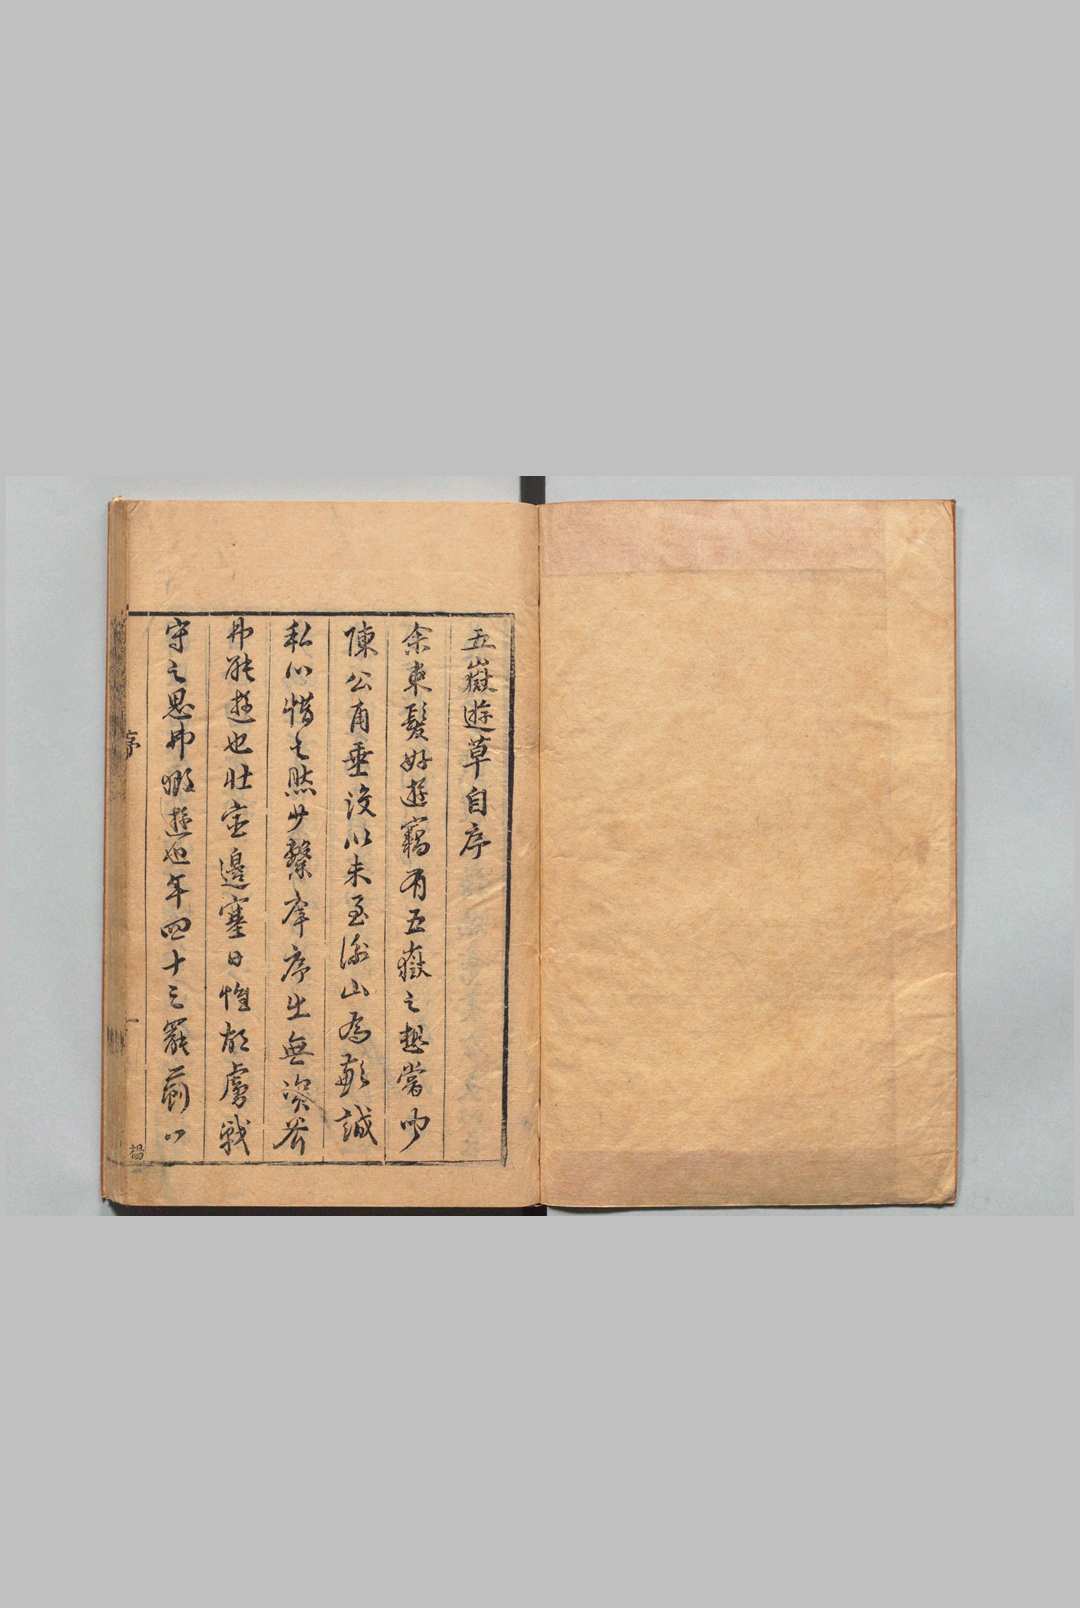 五嶽遊草自序
余束髮好遊竊有五嶽之想嘗聞
陳公甫垂沒以未至衡山為歉誠
私心惜之然少繫庠序出無資斧
弗能遊也壯宦邊塞日惟胡虜戰
守之思弗暇遊也年四十三罷薊以
序
一
楊